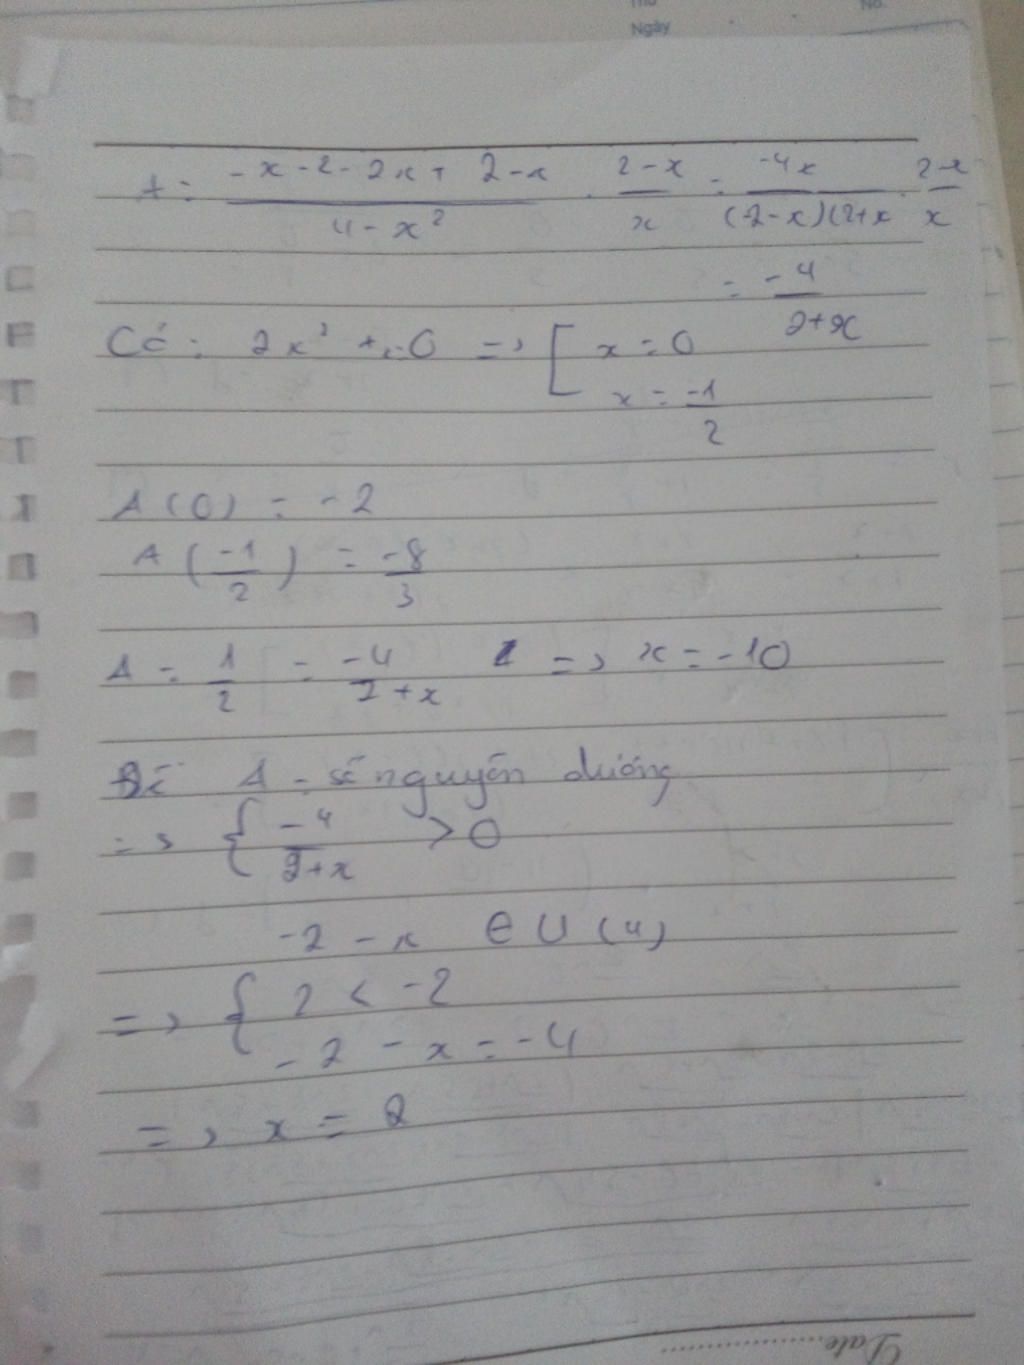 Thứ
No.
Ngày
A = (-x - 2 - 2x + 2 - x)/(4 - x²) . (2 - x)/x = (-4x)/((2 - x)(2 + x) . (2 - x)/x
= (-4)/(2 + x)
Có: 2x² + x = 0 => [ x = 0
x = (-1)/2
A(0) = -2
A((-1)/2) = (-8)/3
A = 1/2 = (-4)/(2 + x) => x = -10
Để A = số nguyên dương
=> { (-4)/(2 + x) > 0
-2 - x ∈ U(4)
=> { 2 < -2
-2 - x = -4
=> x = 2
Date